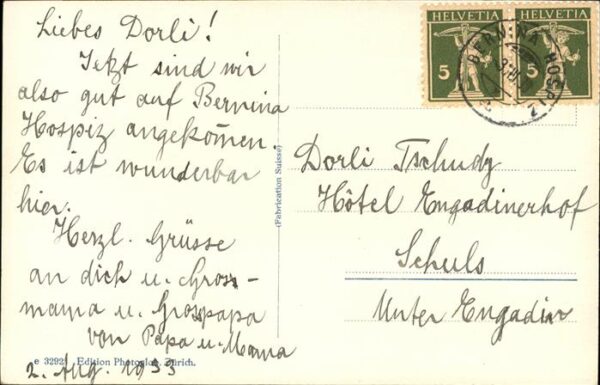 Liebes Dorli!
Jetzt sind wir
also gut auf Bernina
Hospiz angekom̄en.
Es ist wunderbar
hier.
Herzl. Grüsse
an dich u. Gross-
mama u. Grosspapa
von Papa u. Mama
2. Aug. 1933
e 3292 Edition Zürich.
(Fabrication Suisse)
HELVETIA HELVETIA
5 5
BERNINA HOSPIZ
Dorli Tschudy
Hôtel Engadinerhof
Schuls
Unter Engadin